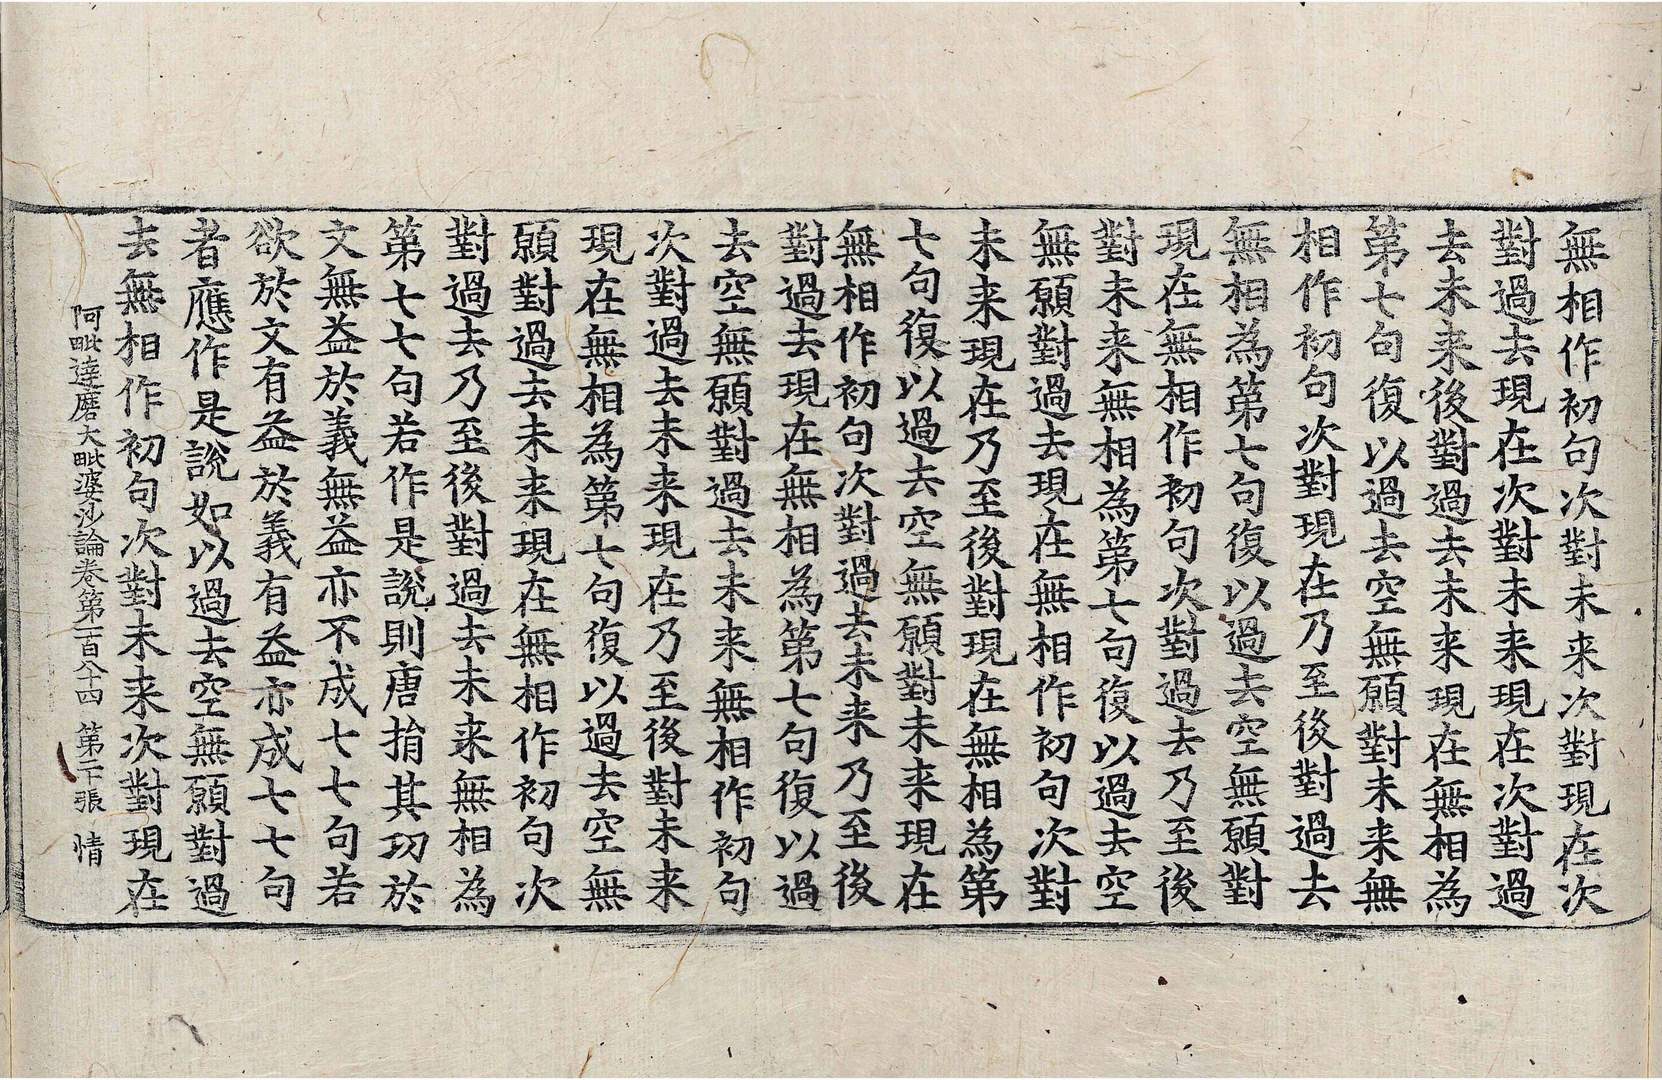 無相作初句次對未来次對現在次
對過去現在次對未来現在次對過
去未来後對過去未来現在無相為
第七句復以過去空無願對未来無
相作初句次對現在乃至後對過去
無相為第七句復以過去空無願對
現在無相作初句次對過去乃至後
對未来無相為第七句復以過去空
無願對過去現在無相作初句次對
未来現在乃至後對現在無相為第
七句復以過去空無願對未来現在
無相作初句次對過去未来乃至後
對過去現在無相為第七句復以過
去空無願對過去未来無相作初句
次對過去未来現在乃至後對未来
現在無相為第七句復以過去空無
願對過去未来現在無相作初句次
對過去乃至後對過去未来無相為
第七七句若作是說則唐捐其功於
文無益於義無益亦不成七七句若
欲於文有益於義有益亦成七七句
者應作是說如以過去空無願對過
去無相作初句次對未来次對現在
阿毗達磨大毗婆沙論卷第一百八十四 第二十張 情